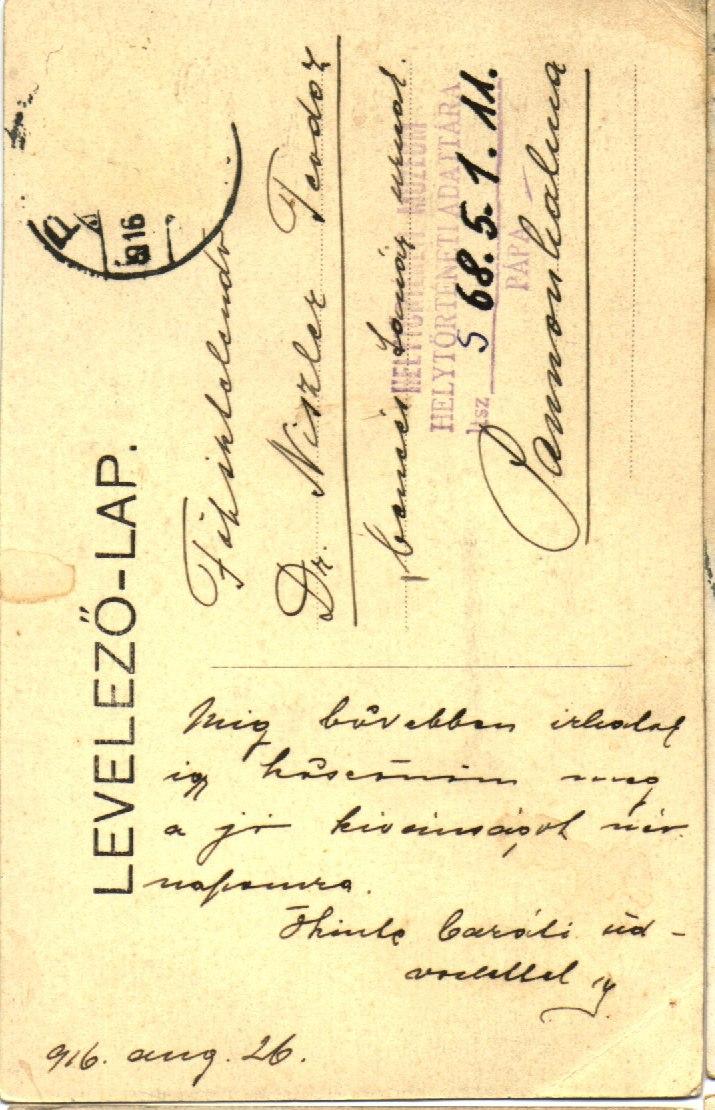 LEVELEZŐ-LAP.
916
Főtisztelendő
Dr. Niszler Teodor
bencés tanár urnak.
HELYTÖRTÉNETI MÚZEUM
HELYTÖRTÉNETI ADATTÁRA
lsz S 68.5.1.11.
PÁPA
Pannonhalma
Mig bővebben irhatok
igy köszönöm meg
a jó kivánságot név-
napomra.
Őszinte baráti üd-
vözlettel
916. aug. 26.